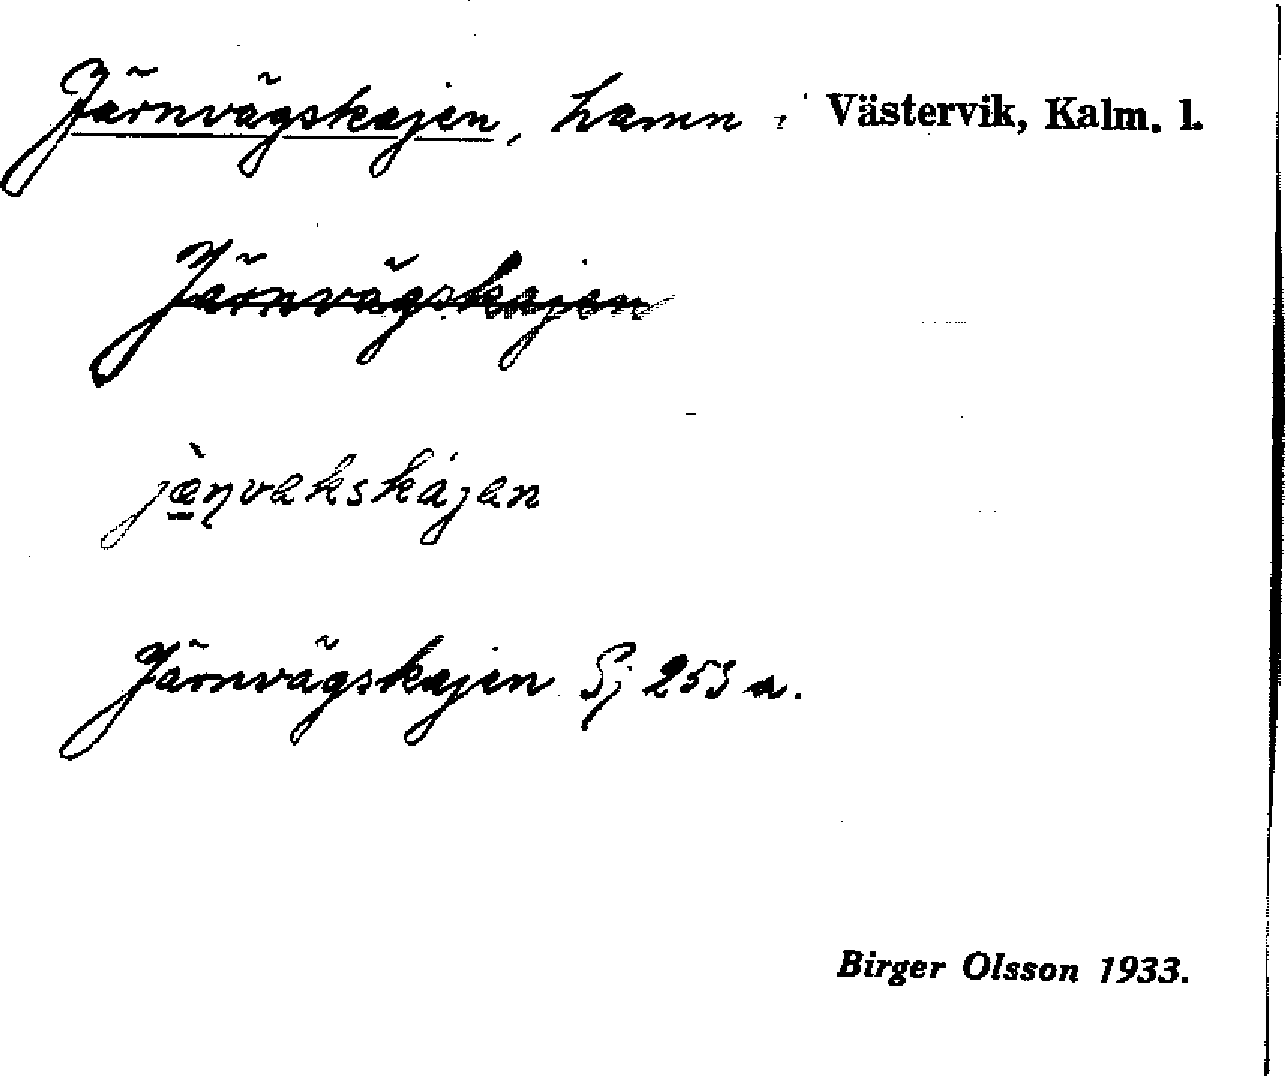 Järnvägskajen, hamn i Västervik, Kalm. l.
Järnvägskajen
jæ̀ɳvakskájen
Järnvägskajen Sj 253 a.
Birger Olsson 1933.